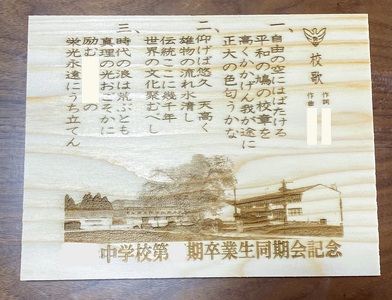 校歌
作詞
作曲
一、自由の空にはばたける
平和の鳩の校章を
高くかかげん我が途に
正大の色匂うかな
二、仰げば悠久 天高く
雄物の流れ水清し
伝統ここに幾千年
世界の文化聚むべし
三、時代の浪は荒ぶとも
真理の光おごそかに
励む の
栄光永遠にうち立てん
中学校第 期卒業生同期会記念